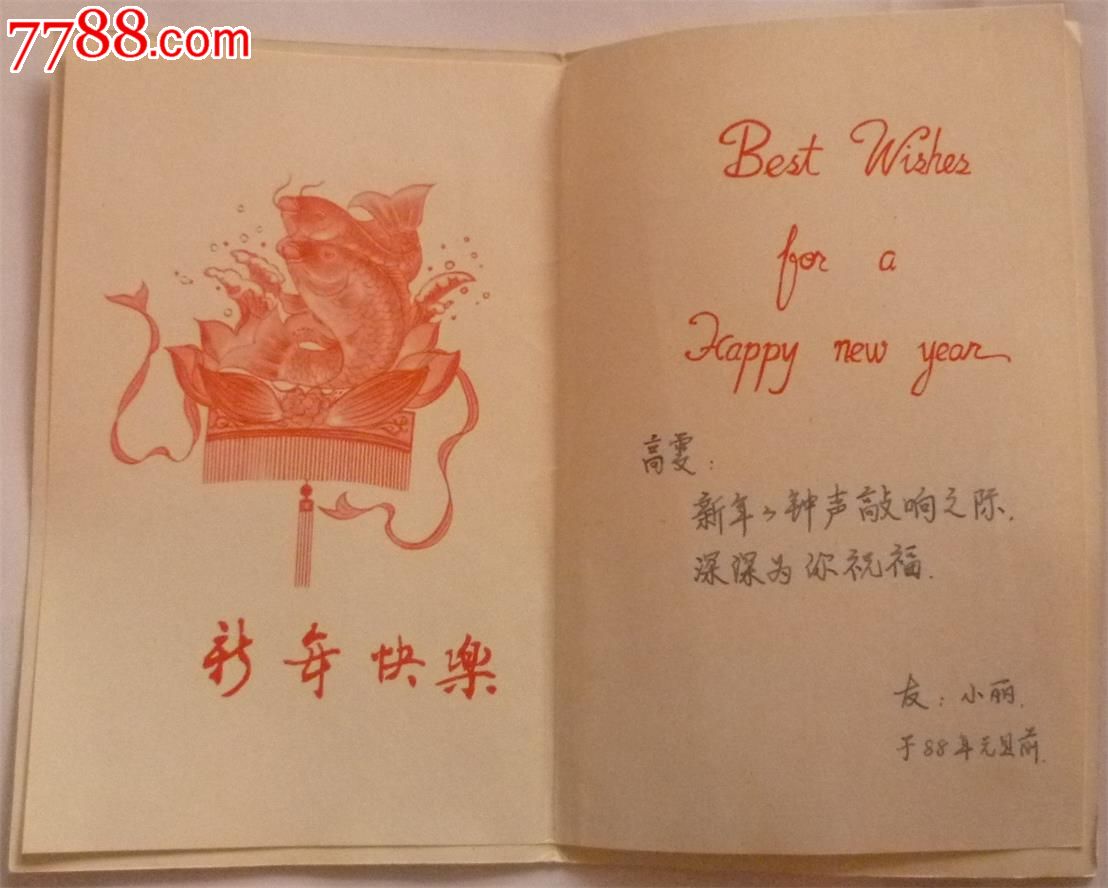 7788.com
新年快樂
Best Wishes
for a
Happy new year
高雯：
新年之钟声敲响之际，
深深为你祝福．
友：小丽．
于88年元旦前．